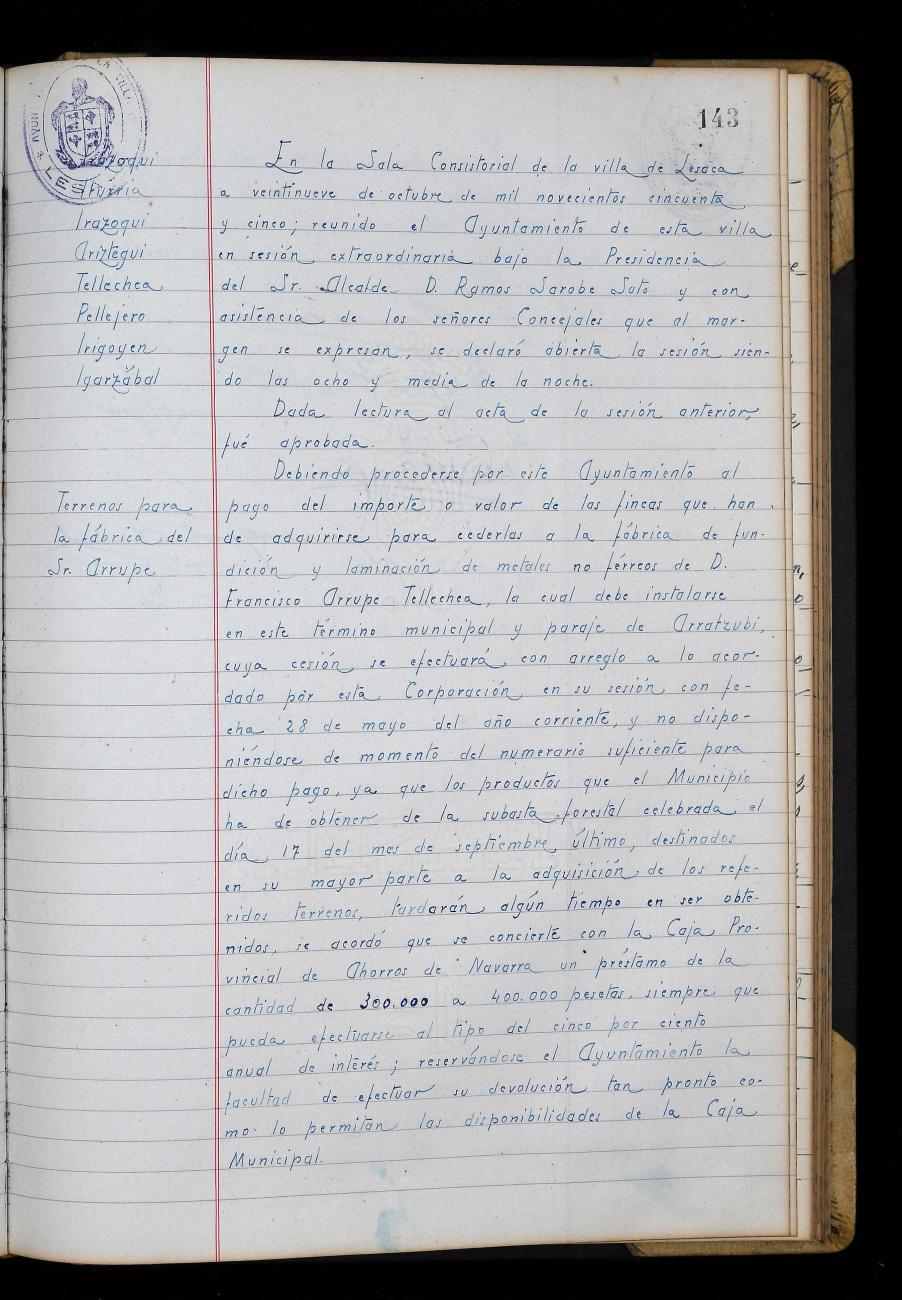 143
AYUN
LES
Iturria
Irazoqui
Ariztegui
Tellechea
Pellejero
Irigoyen
Igarzábal
En la Sala Consistorial de la villa de Lesaca
a veintinueve de octubre de mil novecientos cincuenta
y cinco; reunido el Ayuntamiento de esta villa
en sesión extraordinaria bajo la Presidencia
del Sr. Alcalde D. Ramos Sarobe Soto y con
asistencia de los señores Concejales que al mar-
gen se expresan, se declaró abierta la sesión sien-
do las ocho y media de la noche.
Dada lectura al acta de la sesión anterior,
fué aprobada.
Terrenos para
la fábrica del
Sr. Arrupe
Debiendo procederse por este Ayuntamiento al
pago del importe o valor de las fincas que han
de adquirirse para cederlas a la fábrica de fun-
dición y laminación de metales no férreos de D.
Francisco Arrupe Tellechea, la cual debe instalarse
en este término municipal y paraje de Arratzubi,
cuya cesión se efectuará con arreglo a lo acor-
dado por esta Corporación en su sesión con fe-
cha 28 de mayo del año corriente, y no dispo-
niéndose de momento del numerario suficiente para
dicho pago, ya que los productos que el Municipio
ha de obtener de la subasta forestal celebrada el
día 17 del mes de septiembre último, destinados
en su mayor parte a la adquisición de los refe-
ridos terrenos, tardarán algún tiempo en ser obte-
nidos, se acordó que se concierte con la Caja Pro-
vincial de Ahorros de Navarra un préstamo de la
cantidad de 300.000 a 400.000 pesetas, siempre que
pueda efectuarse al tipo del cinco por ciento
anual de interés; reservándose el Ayuntamiento la
facultad de efectuar su devolución tan pronto co-
mo lo permitan las disponibilidades de la Caja
Municipal.